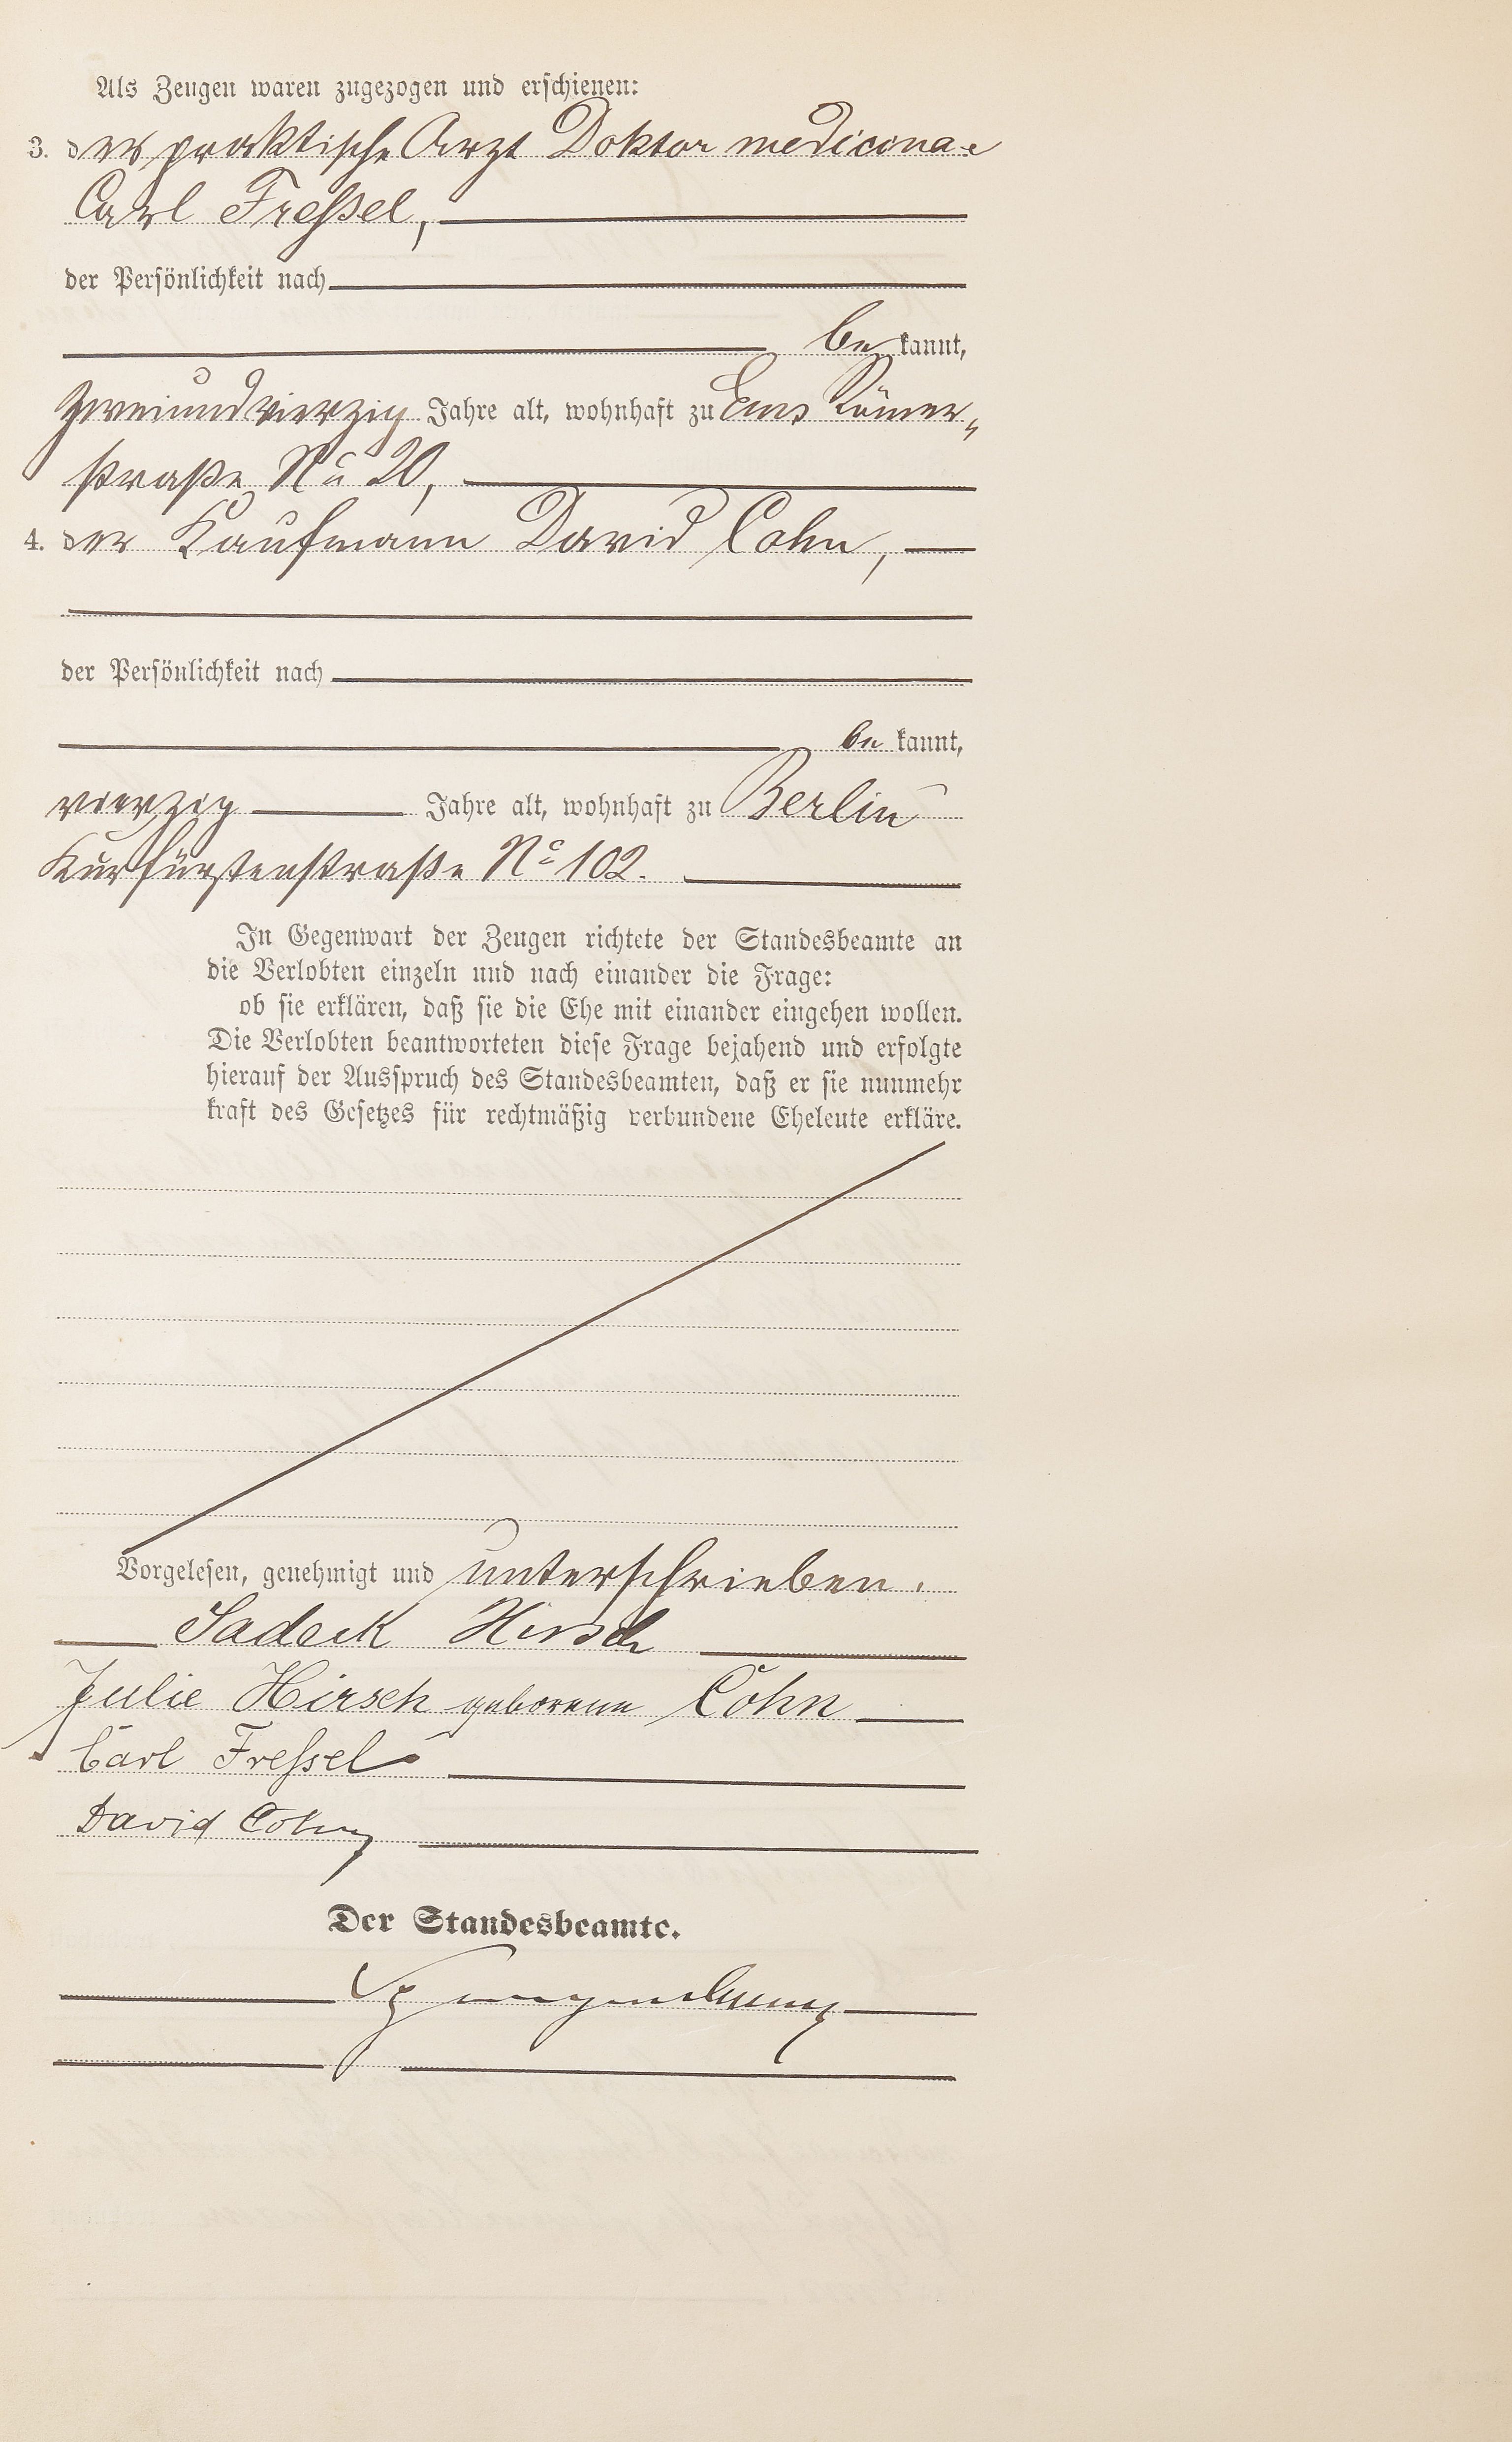 Als Zeugen waren zugezogen und erschienen:
3. der praktische Arzt Doktor medicinae
Carl Freßel,
der Persönlichkeit nach
be kannt,
zweiundvierzig Jahre alt, wohnhaft zu Ems Römer„
straße No 20,
4. der Kaufmann David Cohn,
der Persönlichkeit nach
be kannt,
vierzig Jahre alt, wohnhaft zu Berlin
Kurfürstenstraße No 102.
In Gegenwart der Zeugen richtete der Standesbeamte an
die Verlobten einzeln und nach einander die Frage:
ob sie erklären, daß sie die Ehe mit einander eingehen wollen.
Die Verlobten beantworteten diese Frage bejahend und erfolgte
hierauf der Ausspruch des Standesbeamten, daß er sie nunmehr
kraft des Gesetzes für rechtmäßig verbundene Eheleute erkläre.
Vorgelesen, genehmigt und unterschrieben.
Sadeck Hirsch
Julie Hirsch geborene Cohn
Carl Freßel
David Cohn
Der Standesbeamte.